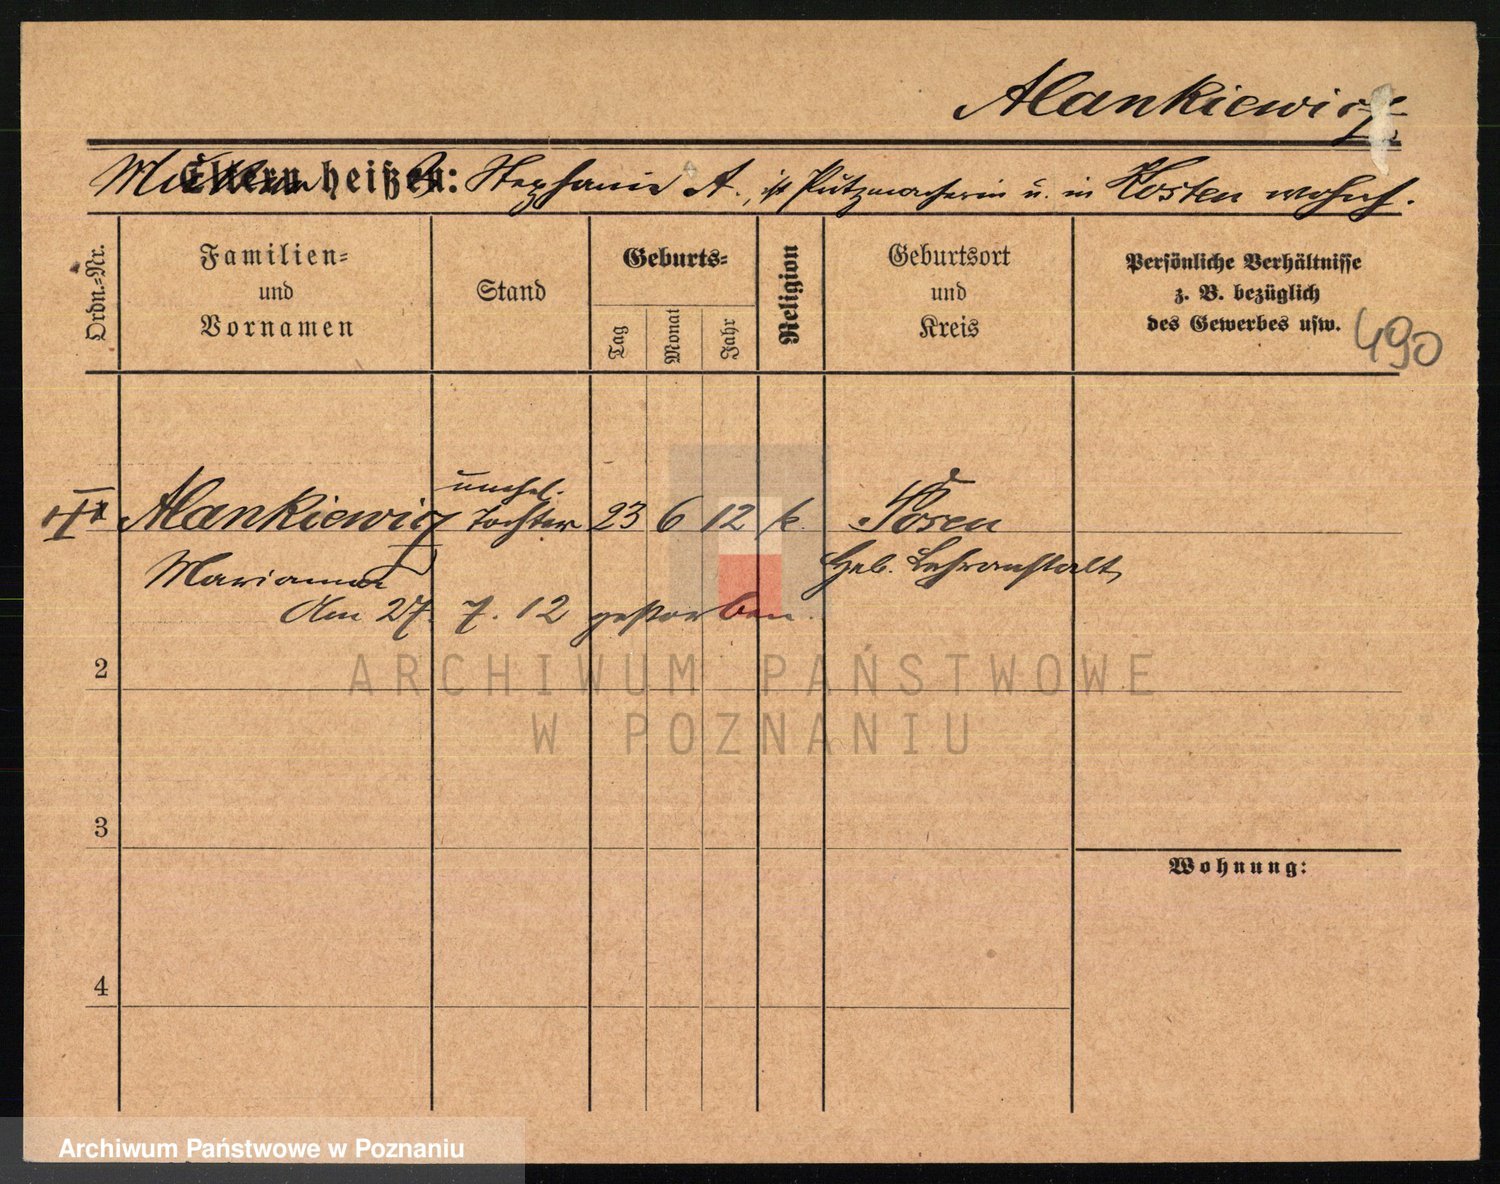 Alankiewicz
Mutter heißt: Stephanie A., ist Putzmacherin u. in Kosten wohnh.
Ordn.-Nr.
Familien=
und
Vornamen
Stand
Geburts=
Tag
Monat
Jahr
Religion
Geburtsort
und
Kreis
Persönliche Verhältnisse
z. B. bezüglich
des Gewerbes usw.
490
unehel.
Alankiewicz Tochter 23 6 12 k. Posen
Marianna Heb. Lehranstalt
Am 27. 7. 12 gestorben.
2
ARCHIWUM PAŃSTWOWE
W POZNANIU
3
Wohnung:
4
Archiwum Państwowe w Poznaniu